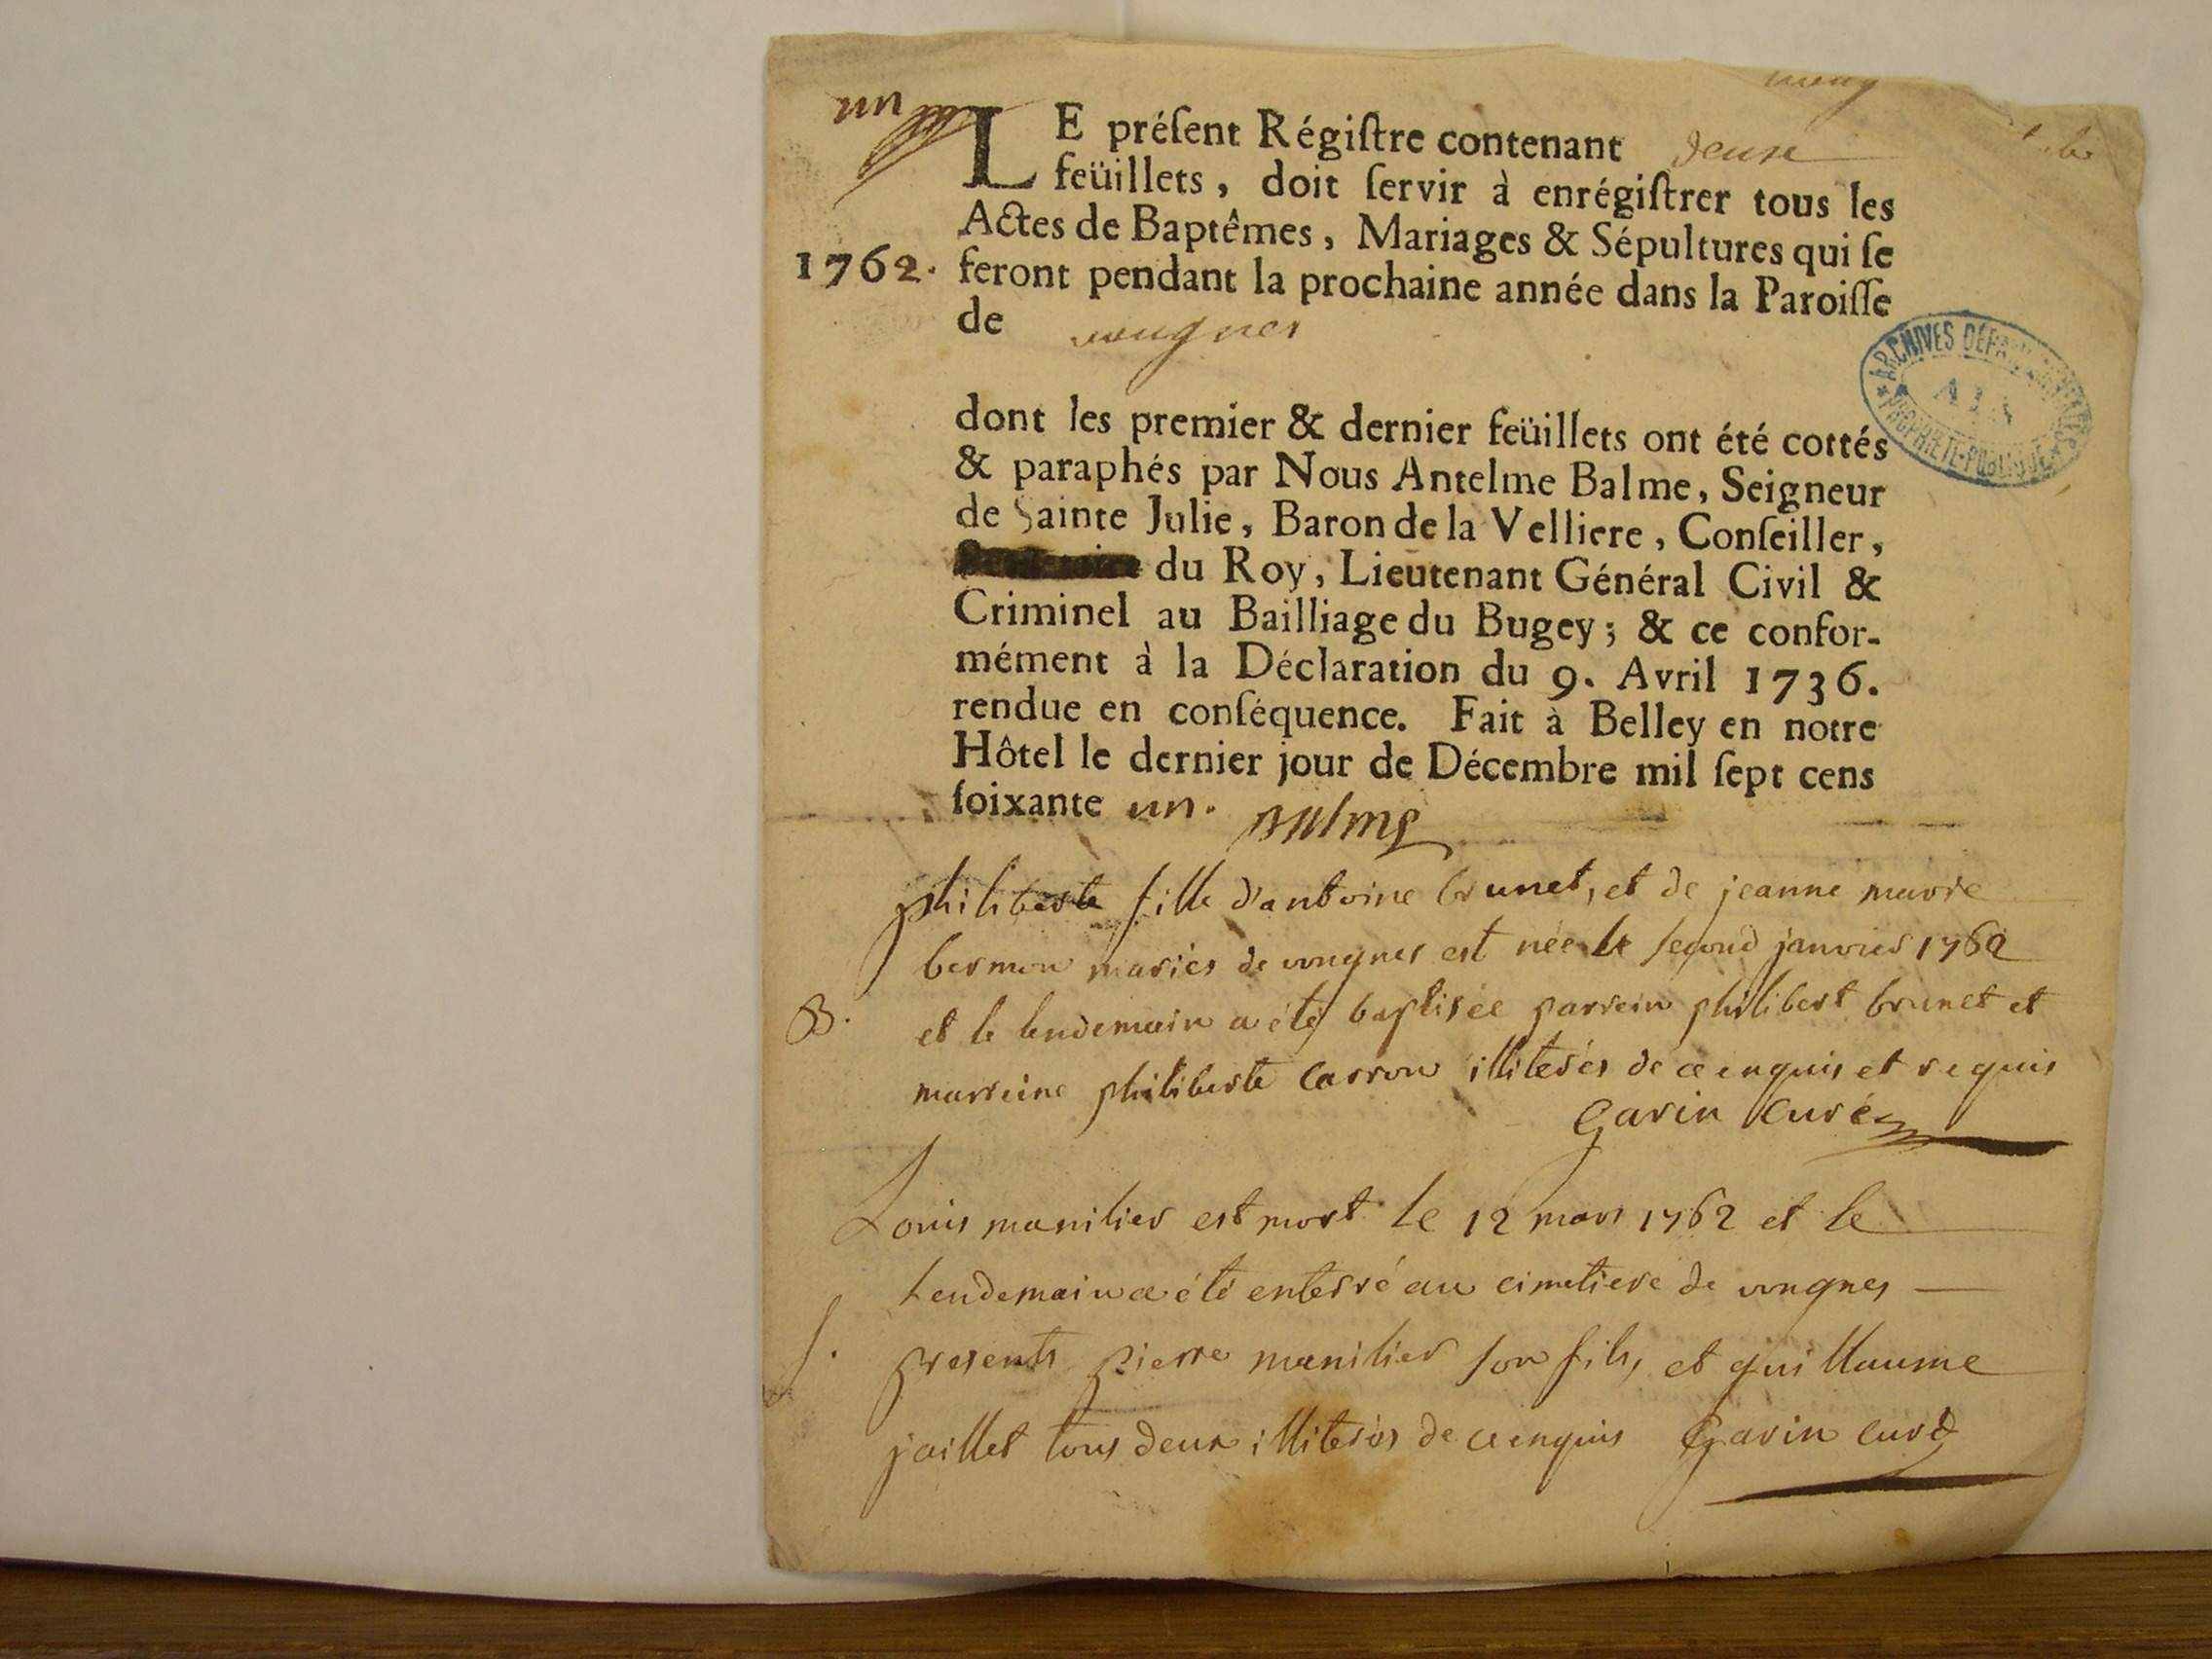 un
LE préſent Régiſtre contenant deux
feüillets, doit ſervir à enrégiſtrer tous les
Actes de Baptêmes, Mariages & Sépultures qui ſe
1762. feront pendant la prochaine année dans la Paroiſſe
de vongnes
ARCHIVES DÉPARTEMENTALES
AIN
PROPRIÉTÉ-PUBLIQUE
dont les premier & dernier feüillets ont été cottés
& paraphés par Nous Antelme Balme, Seigneur
de Sainte Julie, Baron de la Velliere, Conſeiller,
du Roy, Lieutenant Général Civil &
Criminel au Bailliage du Bugey; & ce confor-
mément à la Déclaration du 9. Avril 1736.
rendue en conſéquence. Fait à Belley en notre
Hôtel le dernier jour de Décembre mil ſept cens
ſoixante un. Balme
philiberte fille d'antoine brunet, et de jeanne marie
bermon mariés de vongnes est née le second janvier 1762
B. et le lendemain a été baptisée parrein philibert brunet et
marreine philiberte carron illiterés de ce enquis et requis
Garin Curé
Louis manilier est mort le 12 mars 1762 et le
lendemain a été enterré au cimetiere de vongnes
S. presents pierre manilier son fils, et guillaume
jaillet tous deux illiterés de ce enquis Garin curé